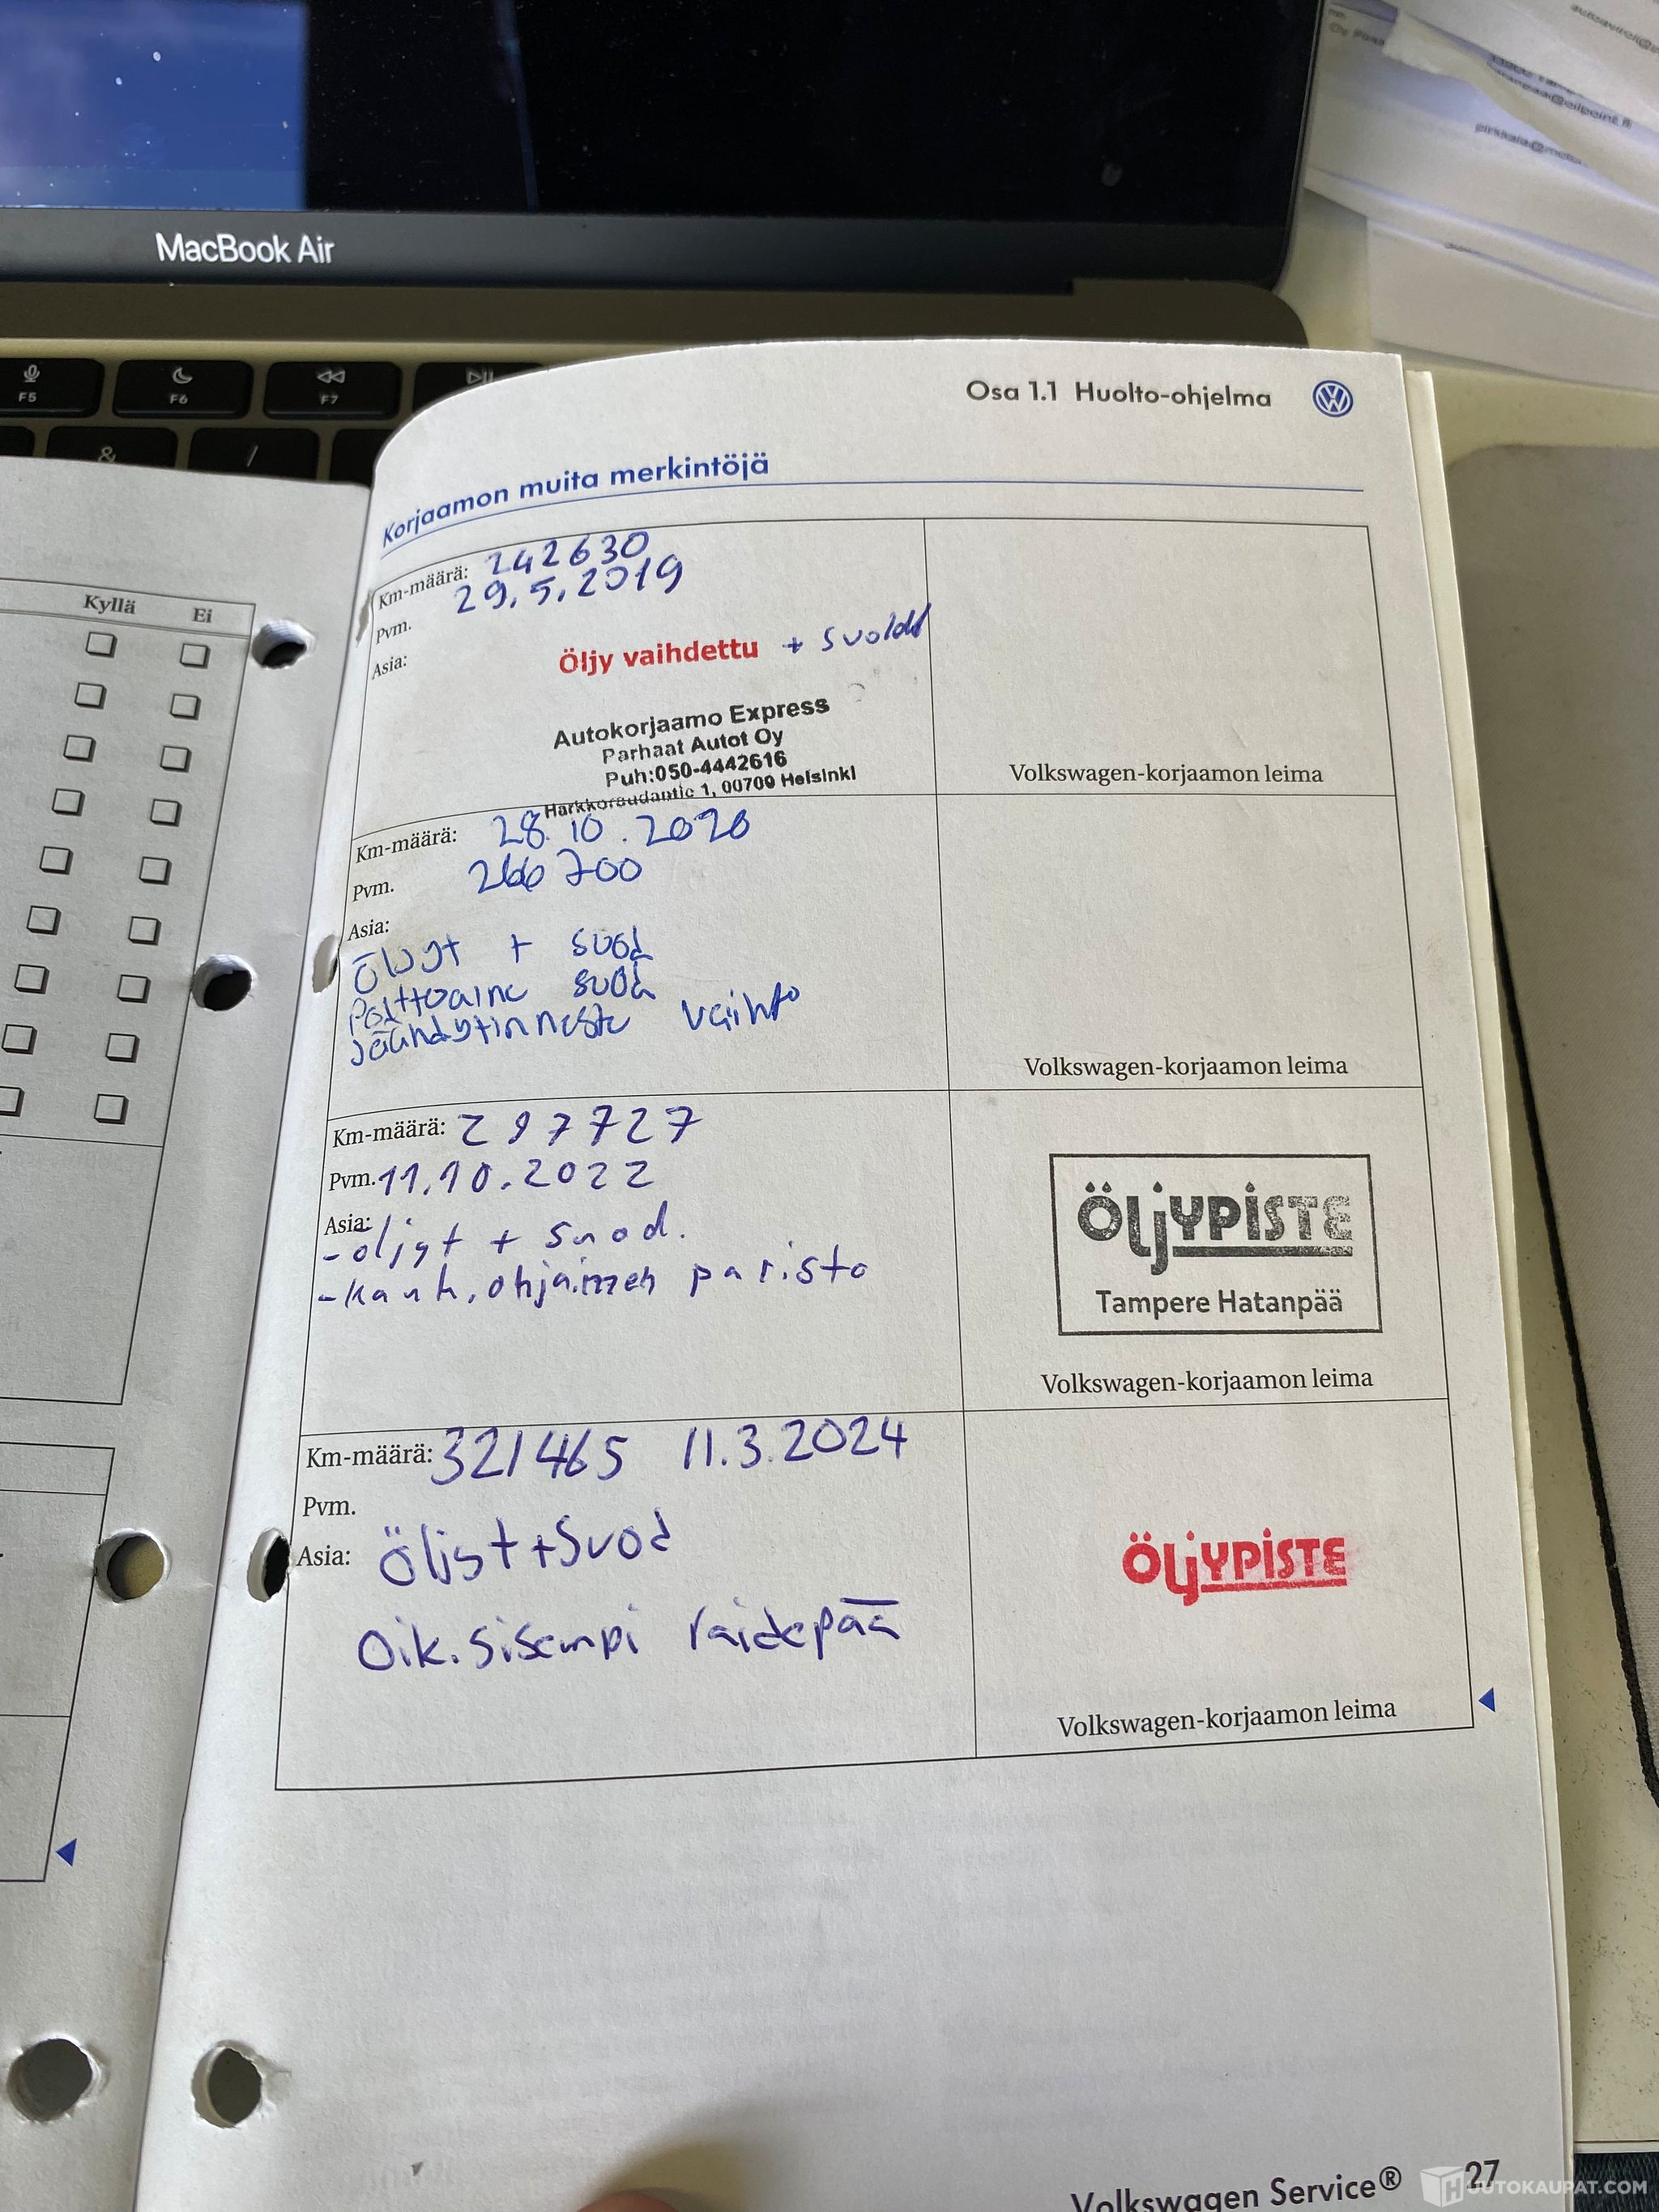 MacBook Air
F5
F6
F7
&
/
Kyllä Ei
Osa 1.1 Huolto-ohjelma
Korjaamon muita merkintöjä
Km-määrä: 242630
29.5.2019
Pvm.
Asia:
Öljy vaihdettu + suodd
Autokorjaamo Express
Parhaat Autot Oy
Puh:050-4442616
Harkkoraudantie 1, 00700 Helsinki
Volkswagen-korjaamon leima
Km-määrä: 28.10.2020
Pvm. 266700
Asia:
Öljyt + suod
Polttoaine suod
Jäähdytinneste vaihto
Volkswagen-korjaamon leima
Km-määrä: 297727
Pvm. 11.10.2022
Asia:
- öljyt + suod.
- kauk.ohjaimen paristo
ÖljYPISTE
Tampere Hatanpää
Volkswagen-korjaamon leima
Km-määrä: 321465 11.3.2024
Pvm.
Asia: Öljyt+suod
Oik.sisempi raidepää
ÖljYPISTE
Volkswagen-korjaamon leima
Volkswagen Service® 27
HUUTOKAUPAT.COM